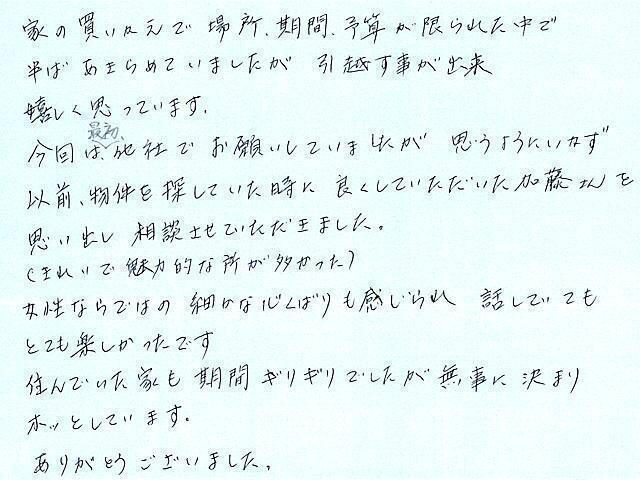 家の買いかえで 場所、期間、予算が限られた中で
半ば あきらめていましたが 引越す事が出来
嬉しく思っています。
今回は最初、他社で お願いしていましたが 思うようにいかず
以前、物件を探していた時に 良くしていただいた加藤さんを
思い出し 相談させていただきました。
(きれいで魅力的な所が多かった)
女性ならではの 細かな心くばりも感じられ 話していても
とても楽しかったです
住んでいた家も 期間ギリギリでしたが 無事に 決まり
ホッとしています。
ありがとうございました。